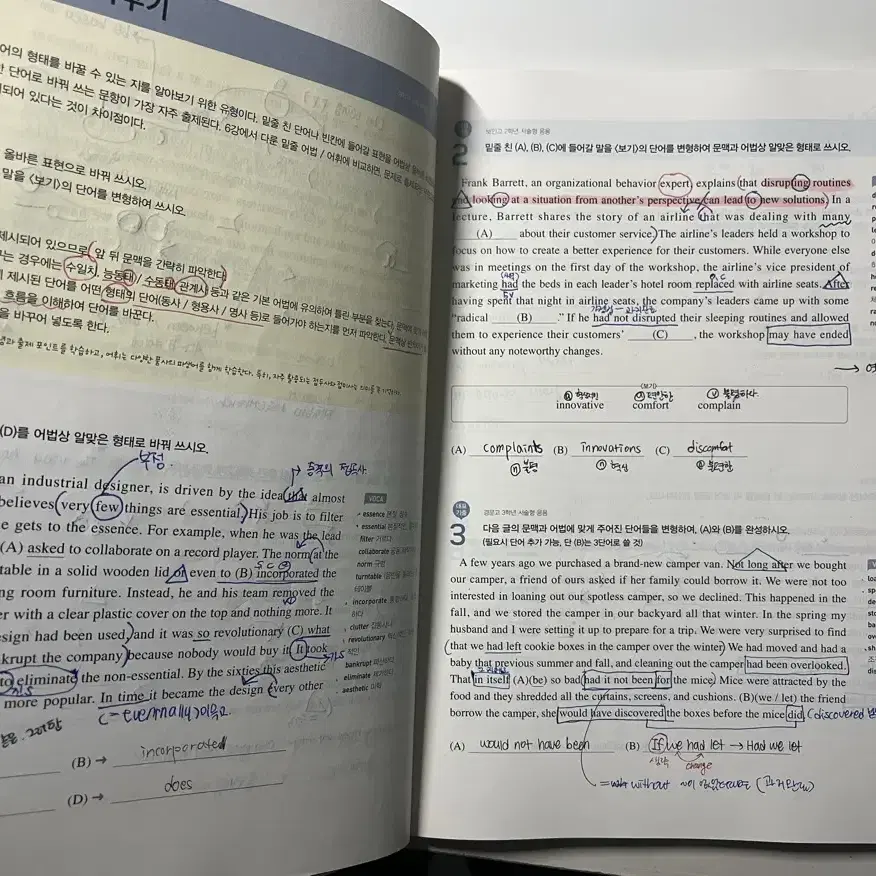 어의 형태를 바꿀 수 있는 지를 알아보기 위한 유형이다. 밑줄 친 단어나 빈칸에 들어갈 표현을 어법상
한 단어로 바꿔 쓰는 문항이 가장 자주 출제된다. 6강에서 다룬 밑줄 어법 / 어휘에 비교하면, 문제로
되어 있다는 것이 차이점이다.
올바른 표현으로 바꿔 쓰시오.
말을 <보기>의 단어를 변형하여 쓰시오.
제시되어 있으므로 앞 뒤 문맥을 간략히 파악한다.
는 경우에는 수일치, 능동태 / 수동태, 관계사 등과 같은 기본 어법에 유의하여 틀린 부분을 찾는다.
제시된 단어를 어떤 형태의 단어(동사 / 형용사 / 명사 등)로 들어가야 하는지를 먼저 파악한다.
흐름을 이해하여 단어를 바꾼다.
을 바꾸어 넣도록 한다.
(D)를 어법상 알맞은 형태로 바꿔 쓰시오.
부정
→ 동격의 접속사
an industrial designer, is driven by the idea that almost
believes very few things are essential. His job is to filter
e gets to the essence. For example, when he was the lead
(A) asked to collaborate on a record player. The norm at the
table in a solid wooden lid or even to (B) incorporated the
ng room furniture. Instead, he and his team removed the
er with a clear plastic cover on the top and nothing more. It
sign had been used, and it was so revolutionary (C) what
krupt the company because nobody would buy it. It took
to eliminate the non-essential. By the sixties this aesthetic
more popular. In time it became the design every other
VOCA
essence
essential
filter
collaborate
norm 규범
turntable
incorporate
clutter
revolutionary
bankrupt
eliminate
aesthetic
(B) → incorporated
(D) → does
2
보인고 2학년 서술형 응용
밑줄 친 (A), (B), (C)에 들어갈 말을 <보기>의 단어를 변형하여 문맥과 어법상 알맞은 형태로 쓰시오.
Frank Barrett, an organizational behavior expert, explains that disrupting routines
and looking at a situation from another's perspective can lead to new solutions. In a
lecture, Barrett shares the story of an airline that was dealing with many
(A) about their customer service. The airline's leaders held a workshop to
focus on how to create a better experience for their customers. While everyone else
was in meetings on the first day of the workshop, the airline's vice president of
marketing had the beds in each leader's hotel room replaced with airline seats. After
having spent that night in airline seats, the company's leaders came up with some
"radical (B) ." If he had not disrupted their sleeping routines and allowed
them to experience their customers' (C) , the workshop may have ended
without any noteworthy changes.
<보기>
ⓐ 혁신적인 ⓥ 불평하다
innovative comfort complain
(A) complaints (B) innovations (C) discomfort
ⓝ 불평 ⓝ 혁신
대표 기출
3
경문고 3학년 서술형 응용
다음 글의 문맥과 어법에 맞게 주어진 단어들을 변형하여, (A)와 (B)를 완성하시오.
(필요시 단어 추가 가능, 단 (B)는 3단어로 쓸 것)
A few years ago we purchased a brand-new camper van. Not long after we bought
our camper, a friend of ours asked if her family could borrow it. We were not too
interested in loaning out our spotless camper, so we declined. This happened in the
fall, and we stored the camper in our backyard all that winter. In the spring my
husband and I were setting it up to prepare for a trip. We were very surprised to find
that we had left cookie boxes in the camper over the winter. We had moved and had a
baby that previous summer and fall, and cleaning out the camper had been overlooked.
That in itself (A)(be) so bad had it not been for the mice. Mice were attracted by the
food and they shredded all the curtains, screens, and cushions. (B)(we / let) the friend
borrow the camper, she would have discovered the boxes before the mice did.
(A) would not have been (B) If we had let → Had we let
생략 change